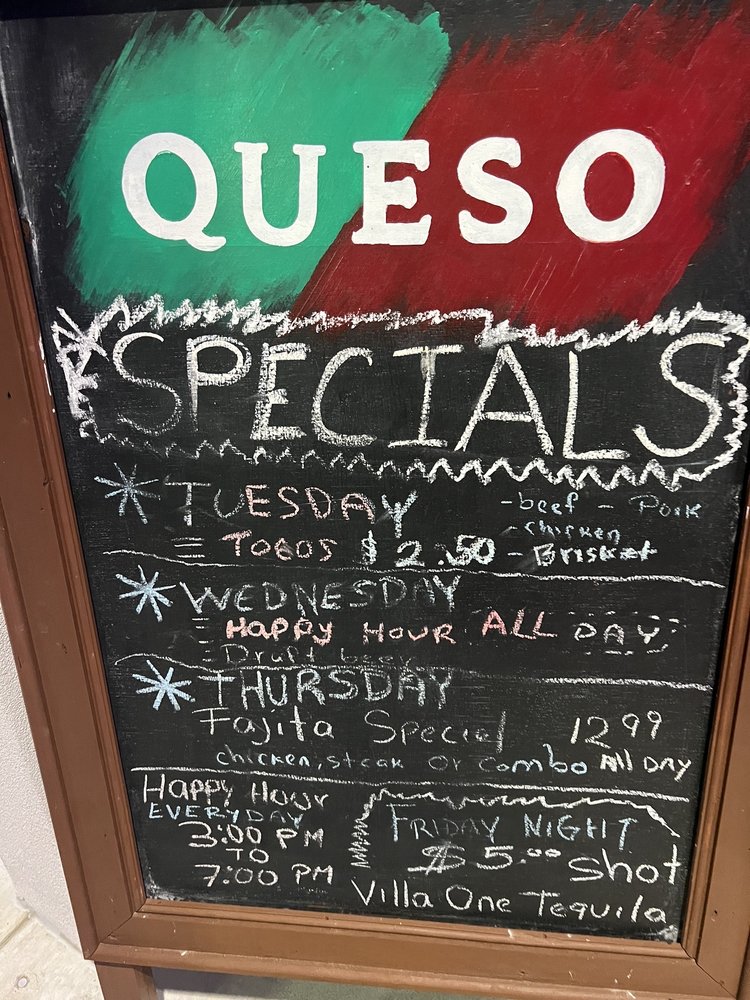 QUESO
SPECIALS
TUESDAY -beef - Pork
- chicken
= Tocos $2.50 - Brisket
WEDNESDAY
= HAPPY HOUR ALL DAY
- Draft beer
THURSDAY
Fajita Special 12.99
chicken, steak or combo All DAY
Happy Hour
EVERYDAY
3:00 PM
TO
7:00 PM
FRIDAY NIGHT
$5.00 shot
Villa One Tequila